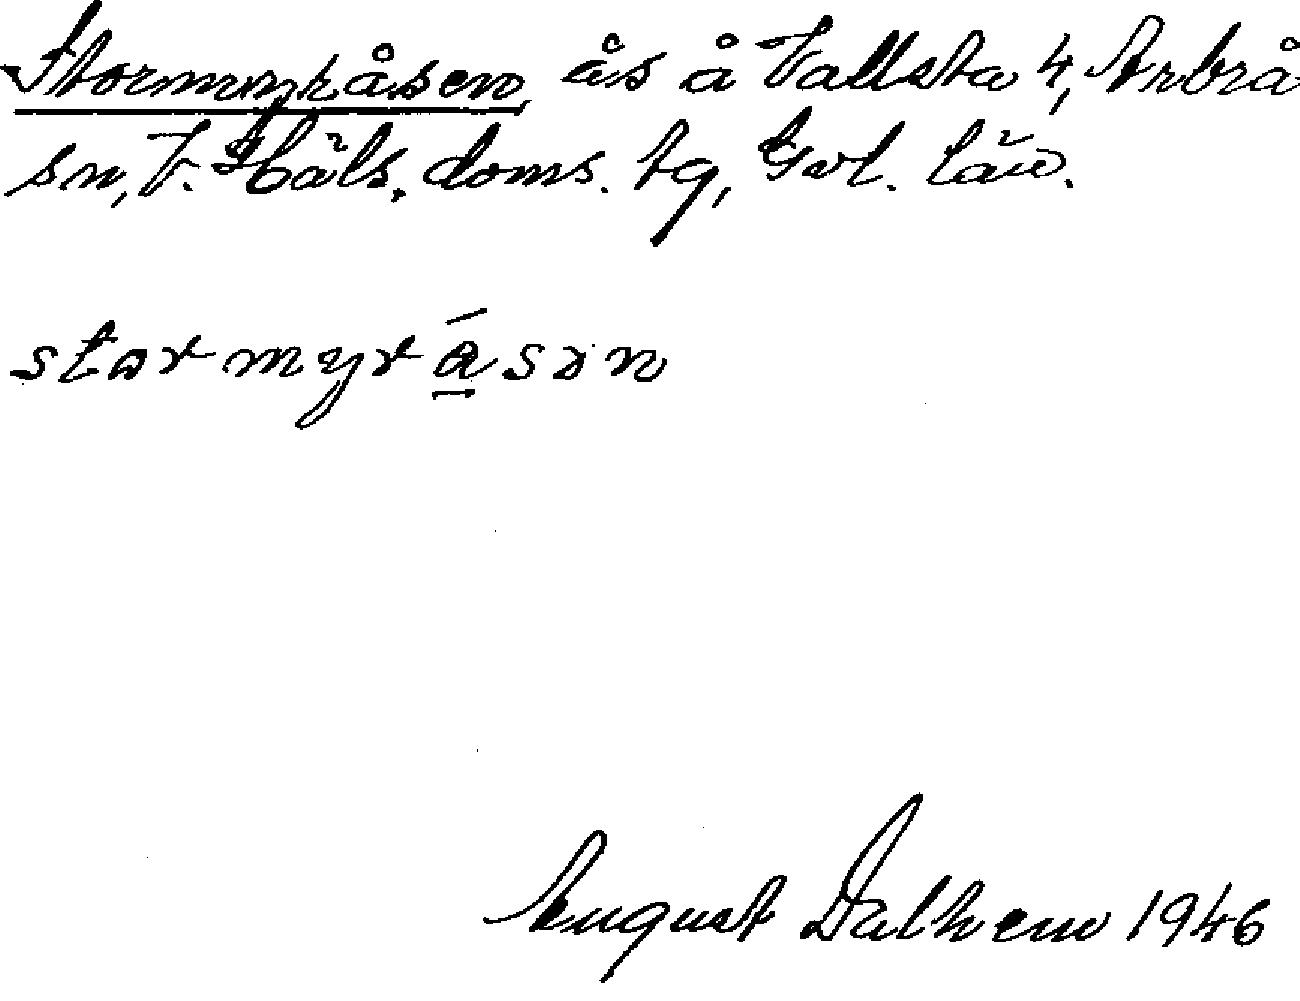 Stormyråsen, ås å Vallsta 4, Arbrå
sn, V. Häls. doms. tg, Gvl. län.
stormyråsən
August Dalhem 1946